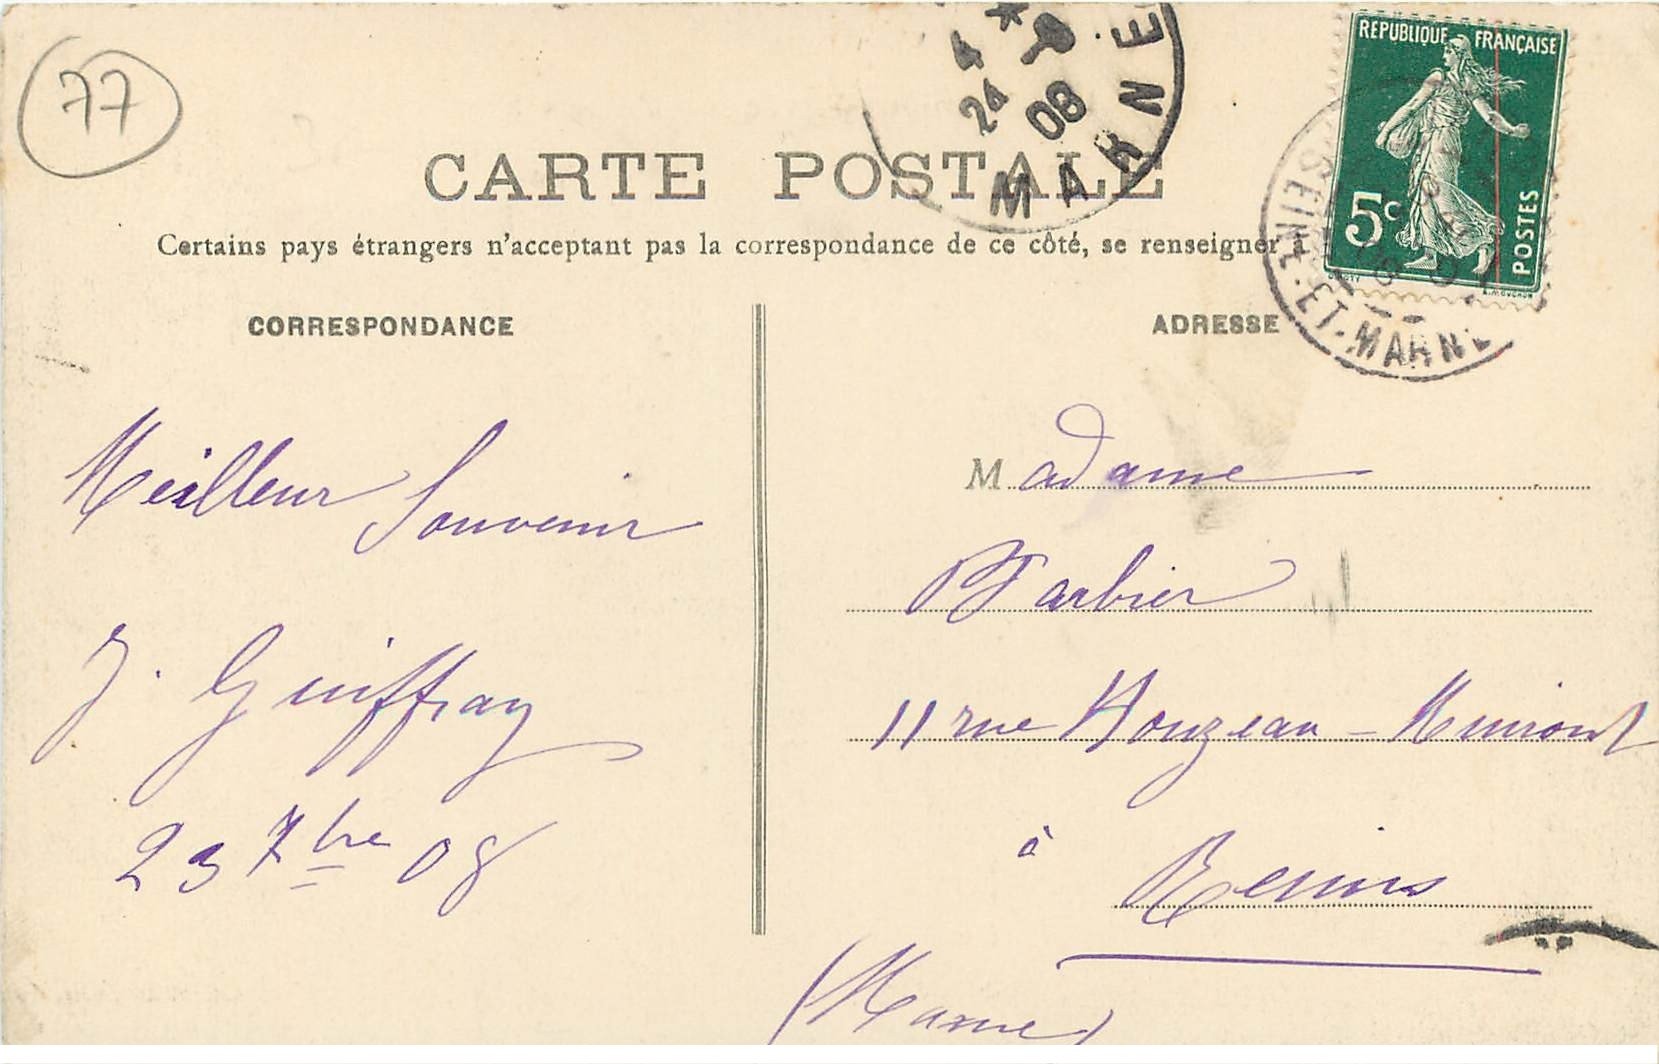 77
4 * 9
24 08
MARNE
RÉPUBLIQUE FRANÇAISE
5c
POSTES
SEINE-ET-MARNE
CARTE POSTALE
Certains pays étrangers n'acceptant pas la correspondance de ce côté, se renseigner
CORRESPONDANCE
Meilleur Souvenir
J. Guiffray
23 7bre 08
ADRESSE
Madame
Barbier
11 rue Houzeau-Muiront
à Reims
(Marne)